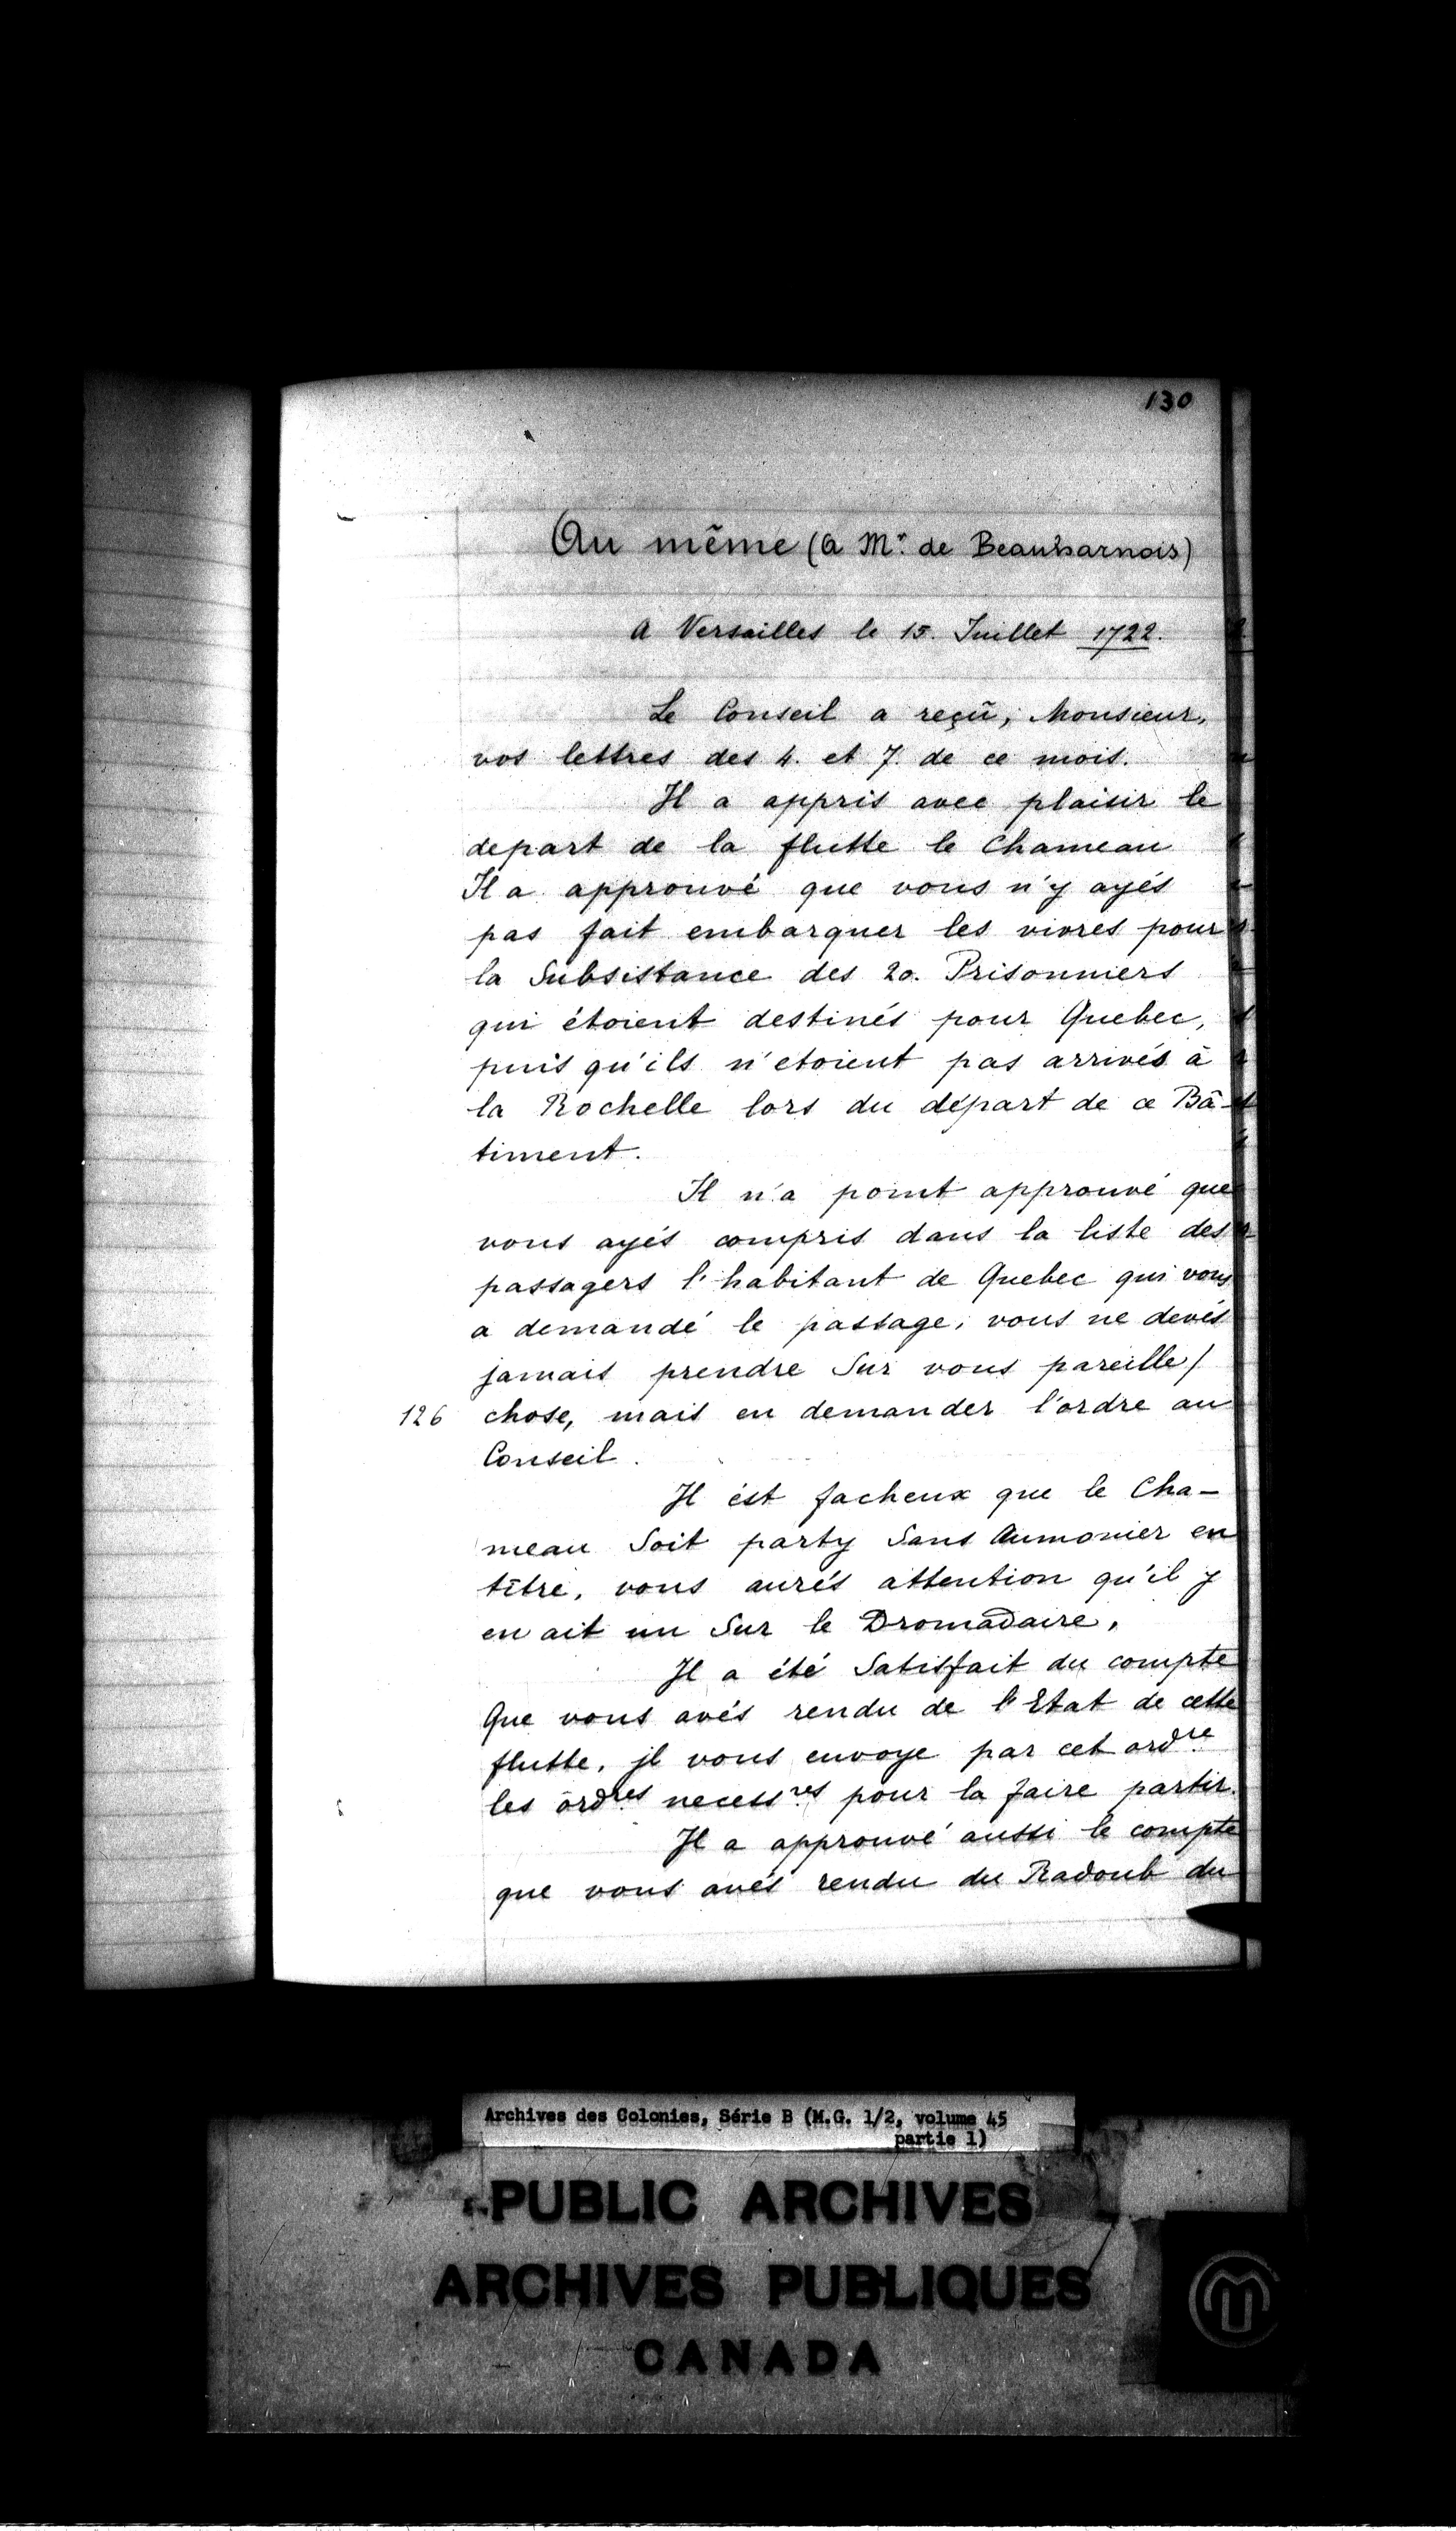 130
Au même (a Mr. de Beauharnois)
a Versailles le 15. Juillet 1722.
Le Conseil a reçû, Monsieur,
vos lettres des 4. et 7. de ce mois.
Il a appris avec plaisir le
depart de la flutte le Chameau
Il a approuvé que vous n'y ayés
pas fait embarquer les vivres pour
la Subsistance des 20. Prisonniers
qui étoient destinés pour Quebec,
puis qu'ils n'etoient pas arrivés à
la Rochelle lors du départ de ce Bâ-
timent.
Il n'a point approuvé que
vous ayés compris dans la liste des
passagers l'habitant de Quebec qui vous
a demandé le passage, vous ne devés
jamais prendre Sur vous pareille/
126 chose, mais en demander l'ordre au
Conseil.
Il ést facheux que le Cha-
meau Soit party Sans Aumonier en
tître, vous aurés attention qu'il y
en ait un Sur le Dromadaire,
Il a été Satisfait du compte
Que vous avés rendu de l'Etat de cette
flutte, jl vous envoye par cet ordre
les ordres necessres pour la faire partir.
Il a approuvé aussi le compte
que vous avés rendu du Radoub du
Archives des Colonies, Série B (M.G. 1/2, volume 45
partie 1)
PUBLIC ARCHIVES
ARCHIVES PUBLIQUES
CANADA